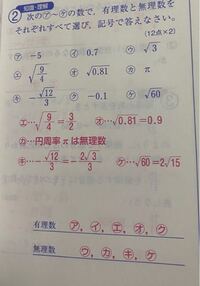 知識・理解
② 次の㋐〜㋘の数で、有理数と無理数を
それぞれすべて選び、記号で答えなさい。
(12点×2)
㋐ −5 ㋑ 0.7 ㋒ √3
㋓ √9/4 ㋔ √0.81 ㋕ π
㋖ −√12/3 ㋗ −0.1 ㋘ √60
㋓…√9/4=3/2 ㋔…√0.81=0.9
㋕…円周率πは無理数
㋖…−√12/3=−2√3/3 ㋘…√60=2√15
有理数 ㋐, ㋑, ㋓, ㋔, ㋗
無理数 ㋒, ㋕, ㋖, ㋘